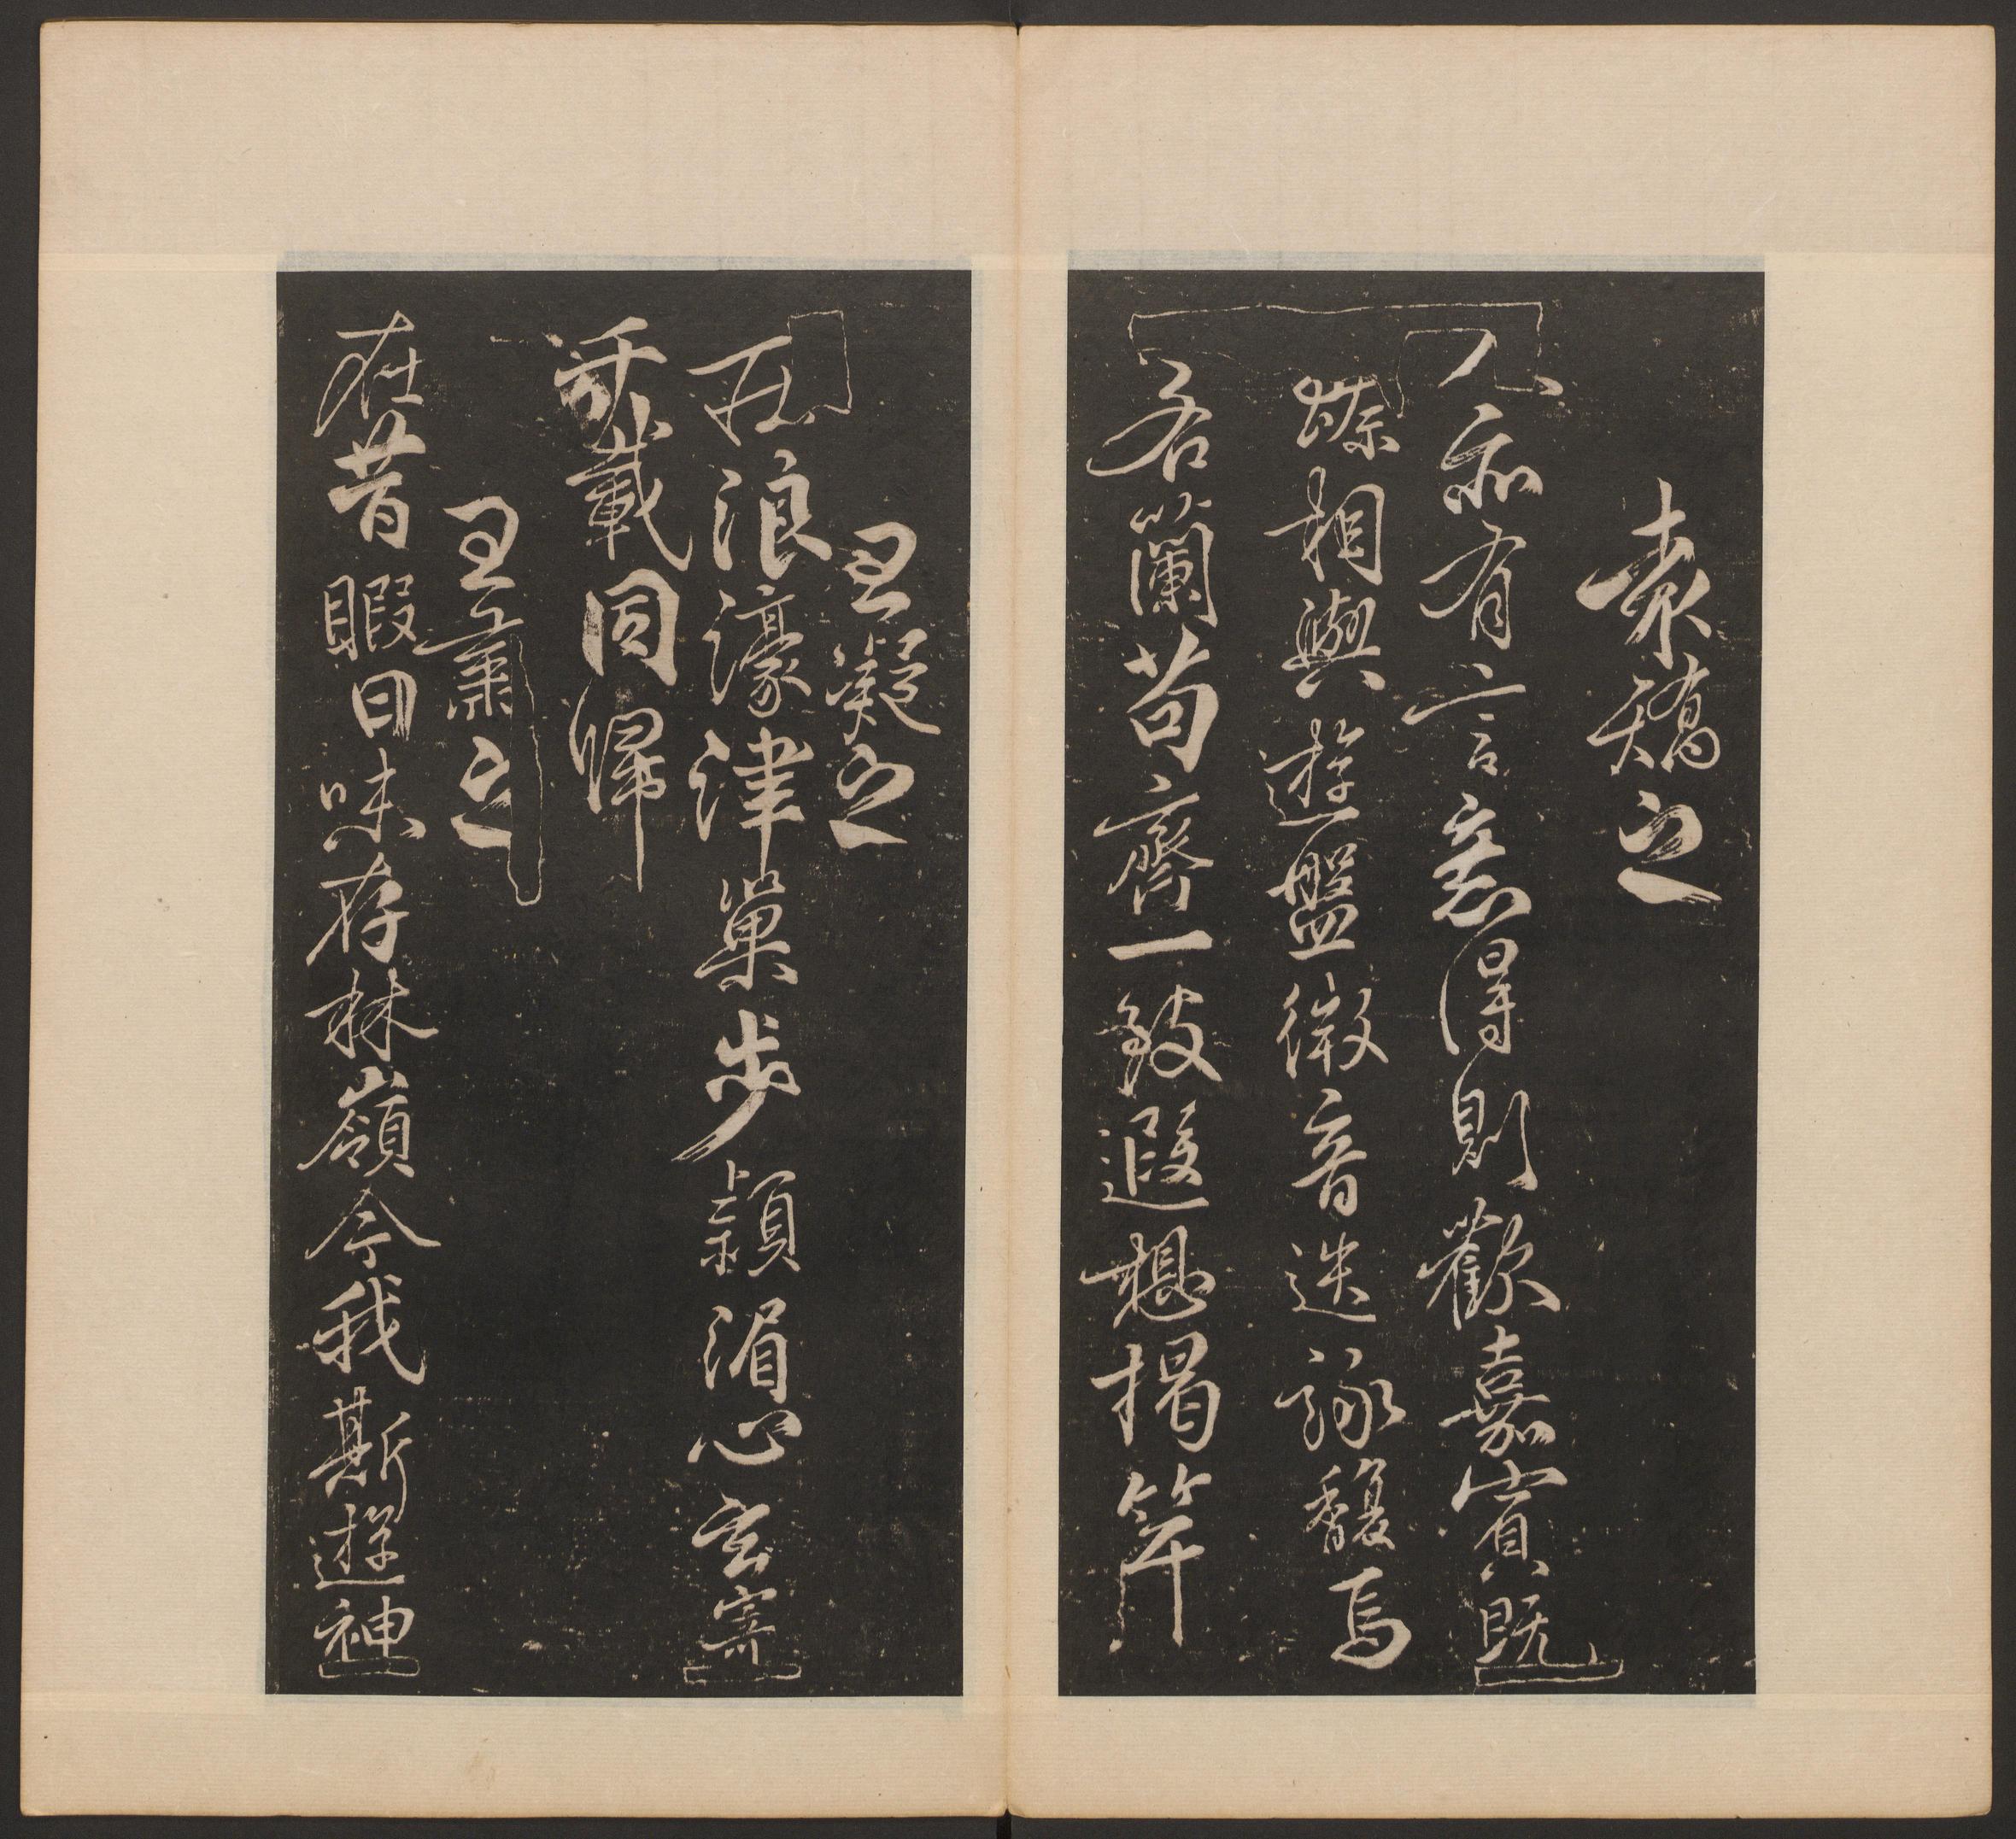 袁矯之
人亦有言意得則歡嘉賓既
臻相與遊盤微音迭詠馥焉
若蘭苟齊一致遐想揭竿
王凝之
莊浪濠津巢步潁湄心玄寄
千載同歸
王肅之
在昔暇日味存林嶺今我斯遊神